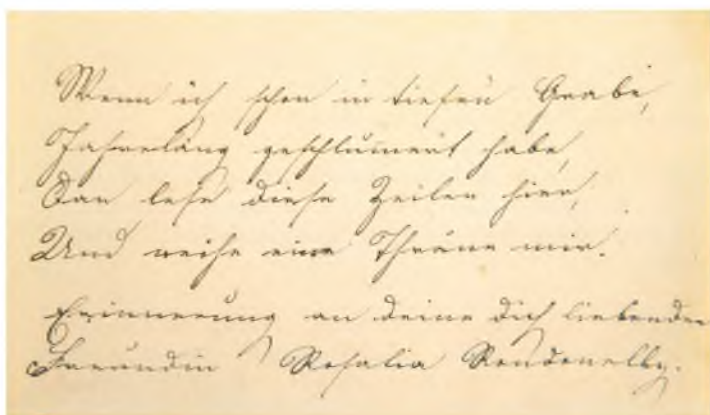 Wenn ich schon in tiefen Grabe,
Jahrelang geschlumert habe,
Dan lese diese Zeilen hier,
Und weihe eine Thräne mir.
Erinnerung an deine dich liebende
Freundin Rosalia